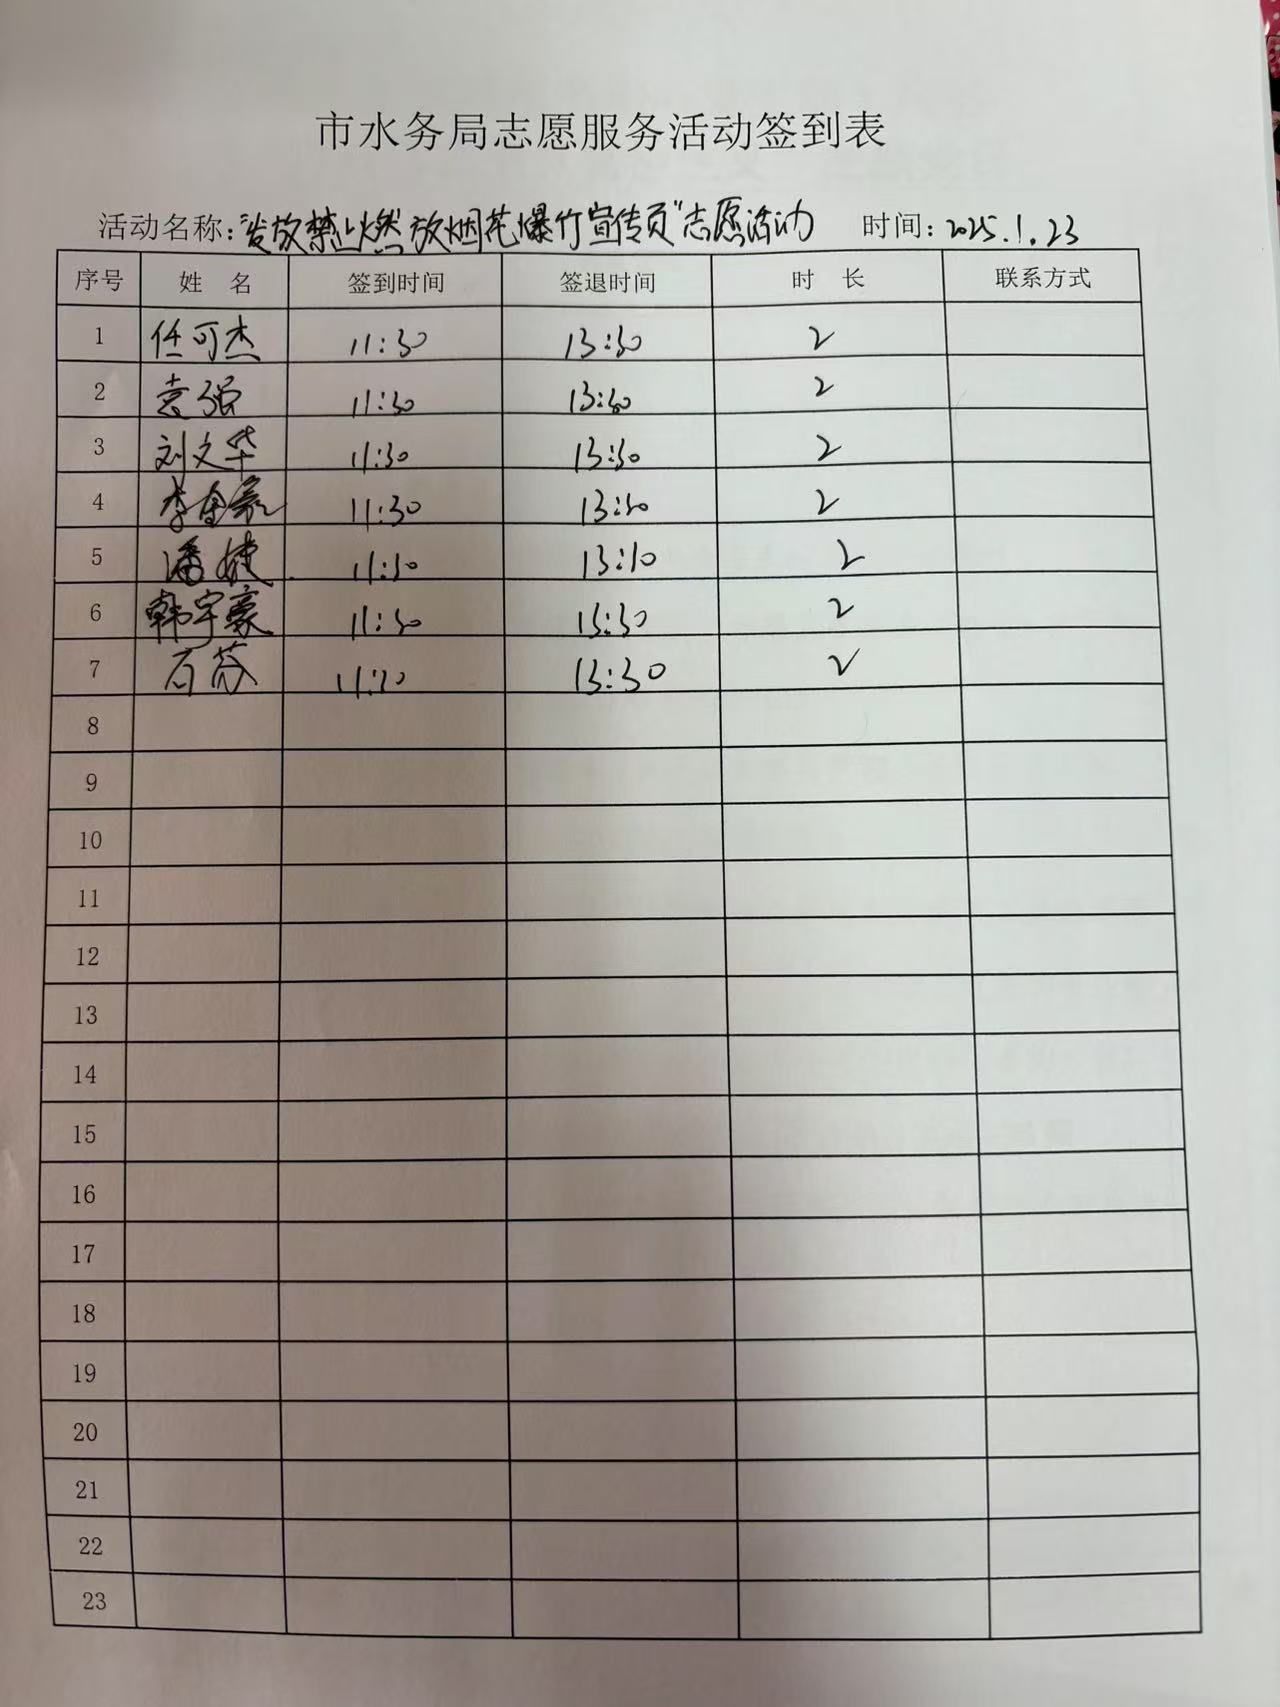 市水务局志愿服务活动签到表
活动名称:"发放禁止燃放烟花爆竹宣传员"志愿活动 时间:2025.1.23
序号 姓 名 签到时间 签退时间 时 长 联系方式
1 任可杰 11:30 13:30 2
2 袁强 11:30 13:30 2
3 刘文华 11:30 13:30 2
4 李 11:30 13:30 2
5 潘婕 11:30 13:30 2
6 韩宇豪 11:30 13:30 2
7 石蕊 11:30 13:30 2
8
9
10
11
12
13
14
15
16
17
18
19
20
21
22
23